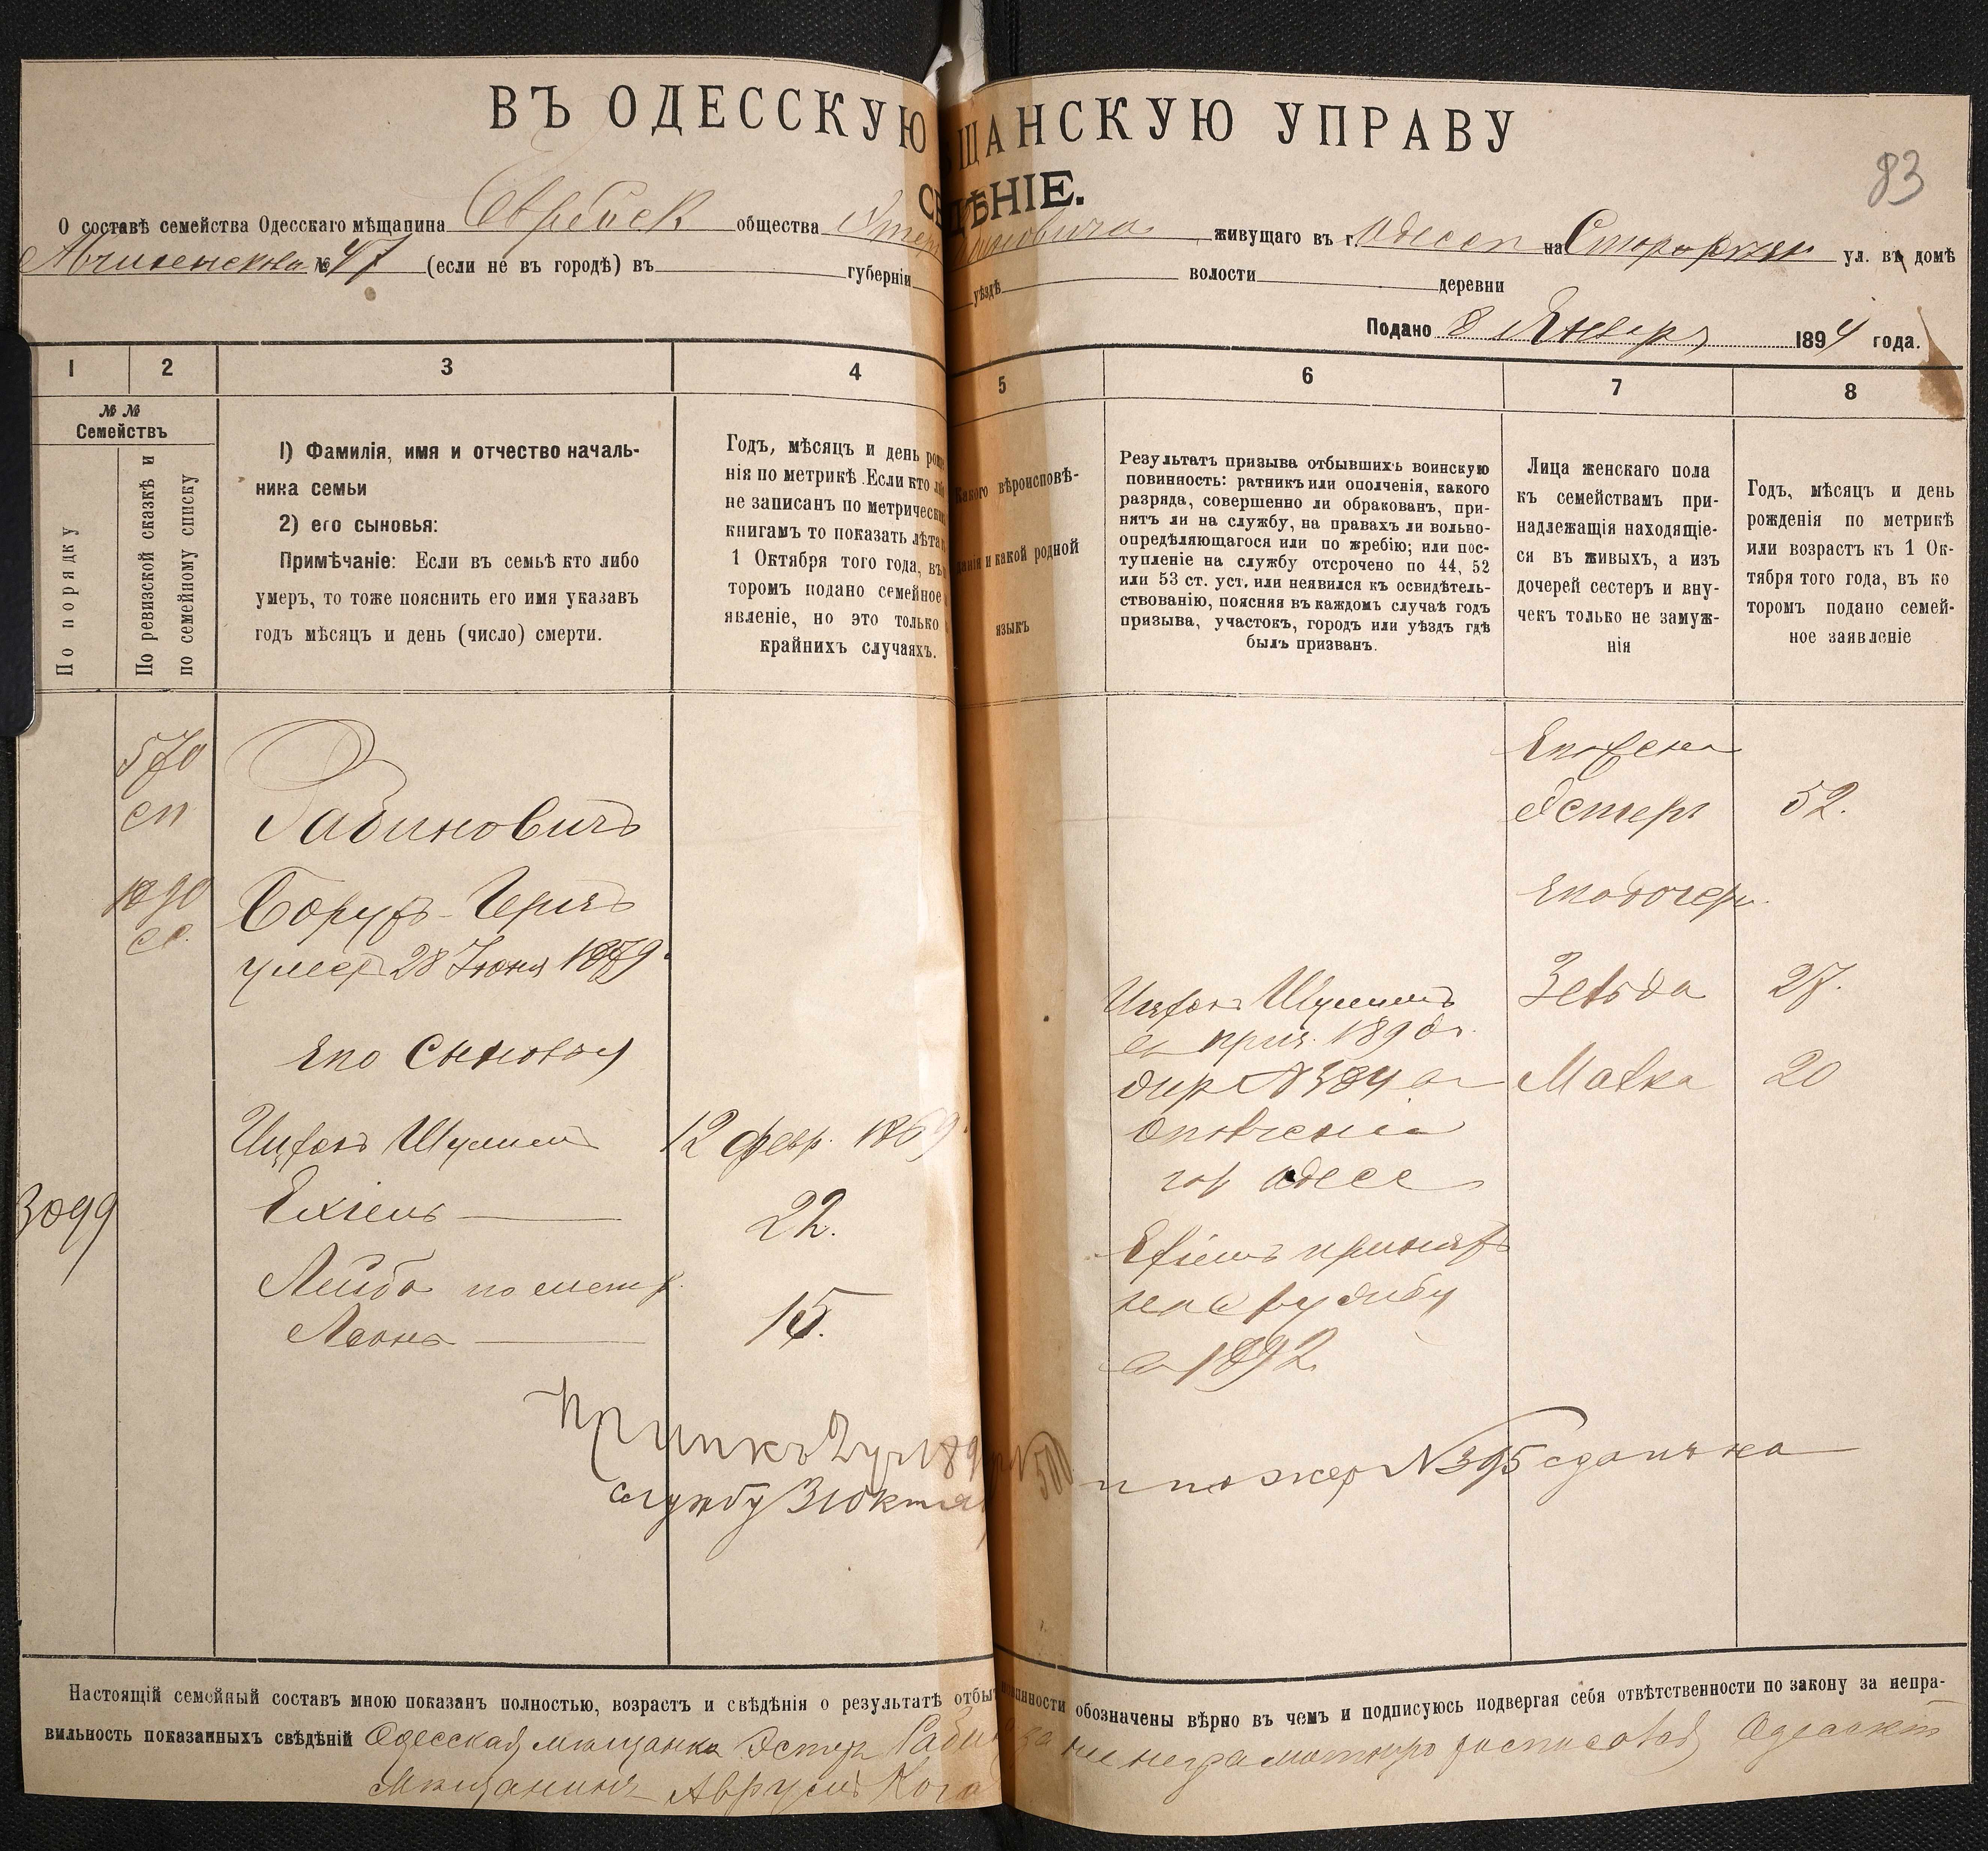 ВЪ ОДЕССКУЮ ЩАНСКУЮ УПРАВУ
83
СВ ДѢНІЕ.
О составѣ семейства Одесскаго мѣщанина Еврейск общества живущаго въ г. Одессѣ на ул. въ домѣ
№ 47 (если не въ городѣ) въ губерніи уѣздѣ волости деревни
Подано 8 Января 1894 года.
1 2 3 4 5 6 7 8
№ №
Семействъ
По порядку
По ревизской сказкѣ и
по семейному списку
1) Фамилія, имя и отчество началь-
ника семьи
2) его сыновья:
Примѣчаніе: Если въ семьѣ кто либо
умеръ, то тоже пояснить его имя указавъ
годъ мѣсяцъ и день (число) смерти.
Годъ, мѣсяцъ и день рож
нія по метрикѣ. Если кто
не записанъ по метрическ
книгамъ то показать лѣта
1 Октября того года, въ
торомъ подано семейное
явленіе, но это только
крайнихъ случаяхъ.
Какого вѣроисповѣ-
данія и какой родной
языкъ
Результатъ призыва отбывшихъ воинскую
повинность: ратникъ или ополченія, какого
разряда, совершенно ли обракованъ, при-
нятъ ли на службу, на правахъ ли вольно-
опредѣляющагося или по жребію; или пос-
тупленіе на службу отсрочено по 44, 52
или 53 ст. уст. или неявился къ освидѣтель-
ствованію, поясняя въ каждомъ случаѣ годъ
призыва, участокъ, городъ или уѣздъ гдѣ
былъ призванъ.
Лица женскаго пола
къ семействамъ при-
надлежащія находящіе-
ся въ живыхъ, а изъ
дочерей сестеръ и вну-
чекъ только не замуж-
нія
Годъ, мѣсяцъ и день
рожденія по метрикѣ
или возрастъ къ 1 Ок-
тября того года, въ ко
торомъ подано семей-
ное заявленіе
570
сп
Рабиновичъ
Его жена
Эстеръ 52.
1090
Борухъ-Гершъ
умеръ 28 Іюня 1879
Его дочери
Зельда 27.
Его сыновья
Ицхокъ Шулимъ
въ приз. 1890 г.
Малка 20
Ицхокъ Шулимъ 12 февр. 1869
ополченіе
гор Одесс
3099
Ехіель 22.
Ехіель принятъ
на службу
въ 1892
Лейба по метр.
Леонъ 15.
службу 31 окт
по жер № 395
Настоящій семейный составъ мною показанъ полностью, возрастъ и свѣдѣнія о результатѣ отбы повинности обозначены вѣрно въ чемъ и подписуюсь подвергая себя отвѣтственности по закону за непра-
вильность показанныхъ свѣдѣній Одесская мѣщанка Эстеръ Рабин неграмотную росписался Одесскій
Мѣщанинъ Аврумъ